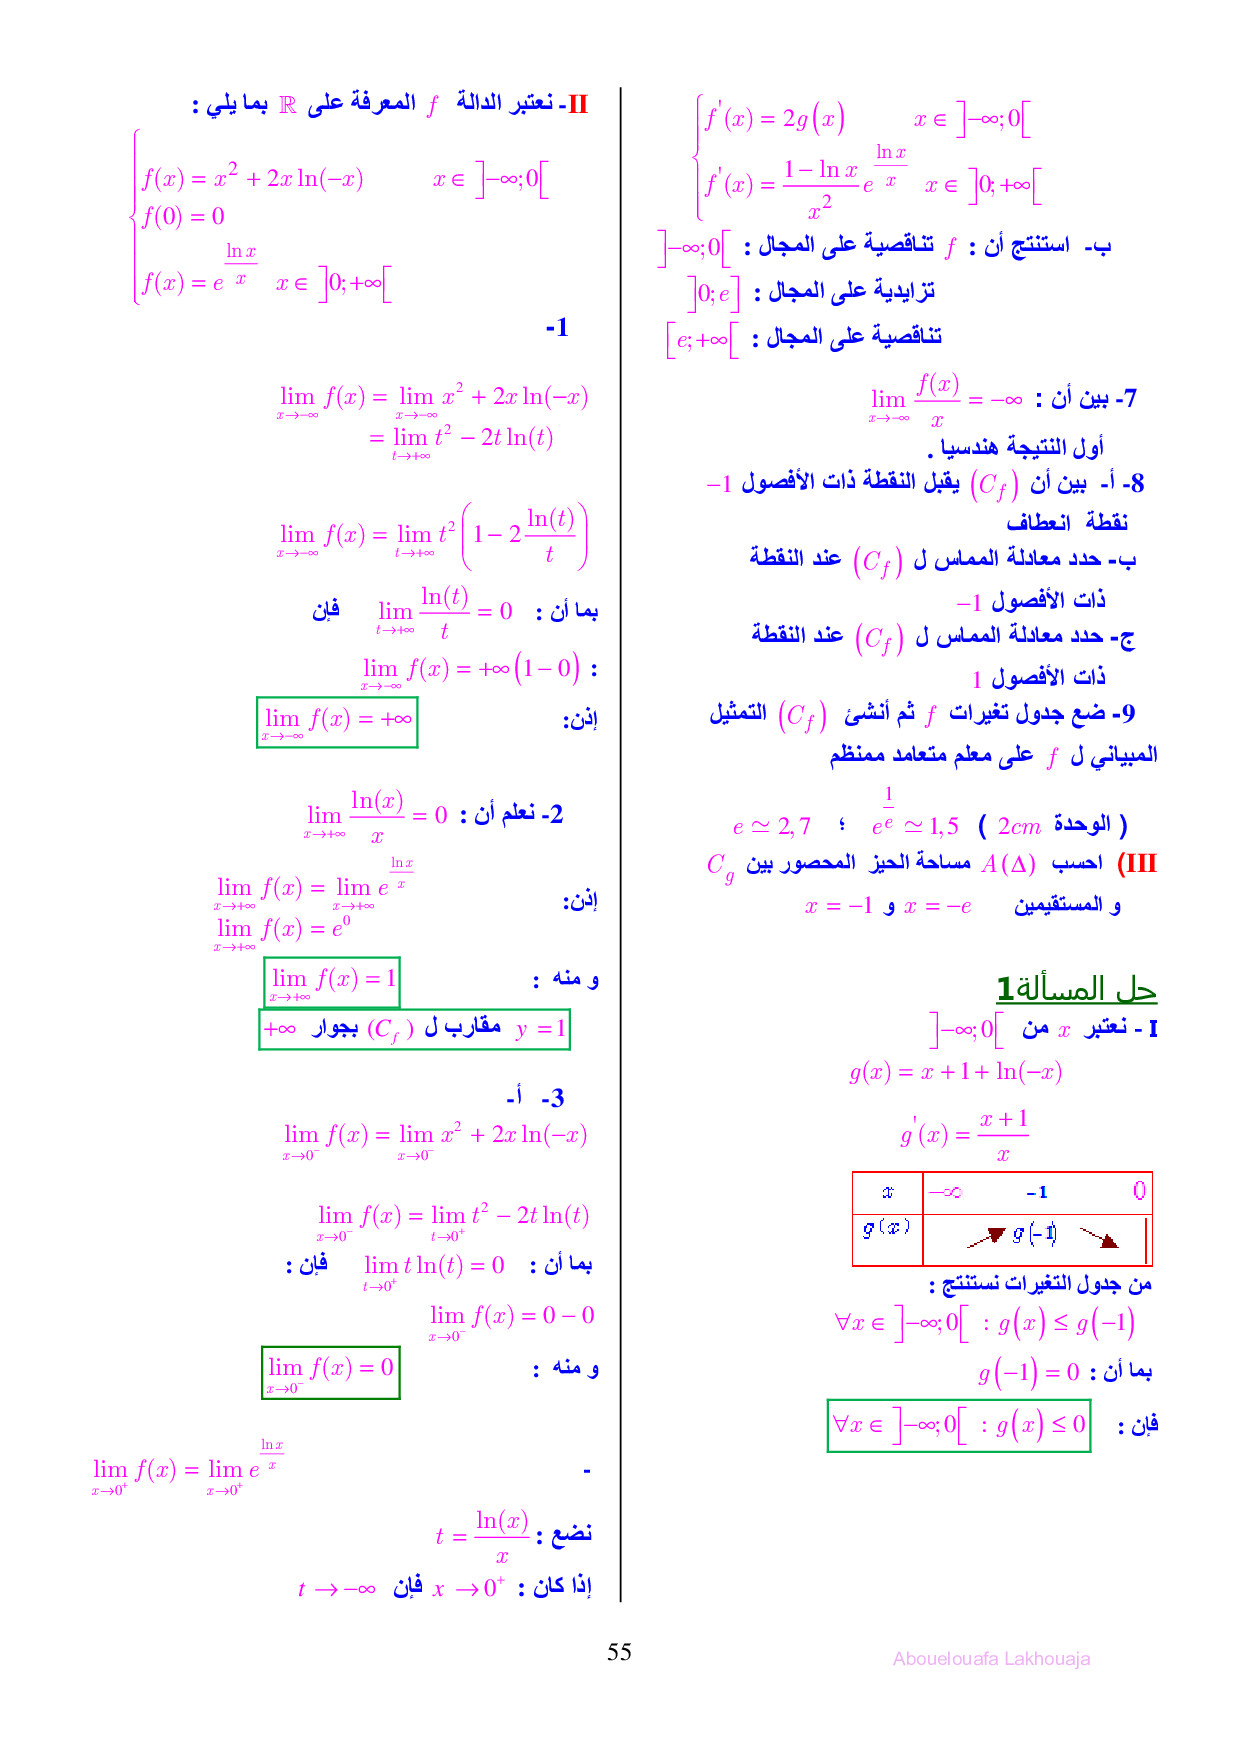 f'(x) = 2g(x) x ∈ ]-∞;0[
f'(x) = (1 - ln x)/x² e^(ln x / x) x ∈ ]0;+∞[
ب- استنتج أن : f تناقصية على المجال : ]-∞;0[
تزايدية على المجال : ]0;e]
تناقصية على المجال : [e;+∞[
7- بين أن : lim_{x→-∞} f(x)/x = -∞
أول النتيجة هندسيا .
8- أ- بين أن (C_f) يقبل النقطة ذات الأفصول -1
نقطة انعطاف
ب- حدد معادلة المماس ل (C_f) عند النقطة
ذات الأفصول -1
ج- حدد معادلة المماس ل (C_f) عند النقطة
ذات الأفصول 1
9- ضع جدول تغيرات f ثم أنشئ (C_f) التمثيل
المبياني ل f على معلم متعامد ممنظم
( الوحدة 2cm ) e^(1/e) ≃ 1,5 ؛ e ≃ 2,7
III) احسب A(Δ) مساحة الحيز المحصور بين C_g
و المستقيمين x = -e و x = -1
حل المسألة1
I - نعتبر x من ]-∞;0[
g(x) = x + 1 + ln(-x)
g'(x) = (x + 1)/x
x -∞ -1 0
g(x) g(-1)
من جدول التغيرات نستنتج :
∀x ∈ ]-∞;0[ : g(x) ≤ g(-1)
بما أن : g(-1) = 0
فإن : ∀x ∈ ]-∞;0[ : g(x) ≤ 0
II- نعتبر الدالة f المعرفة على ℝ بما يلي :
f(x) = x² + 2x ln(-x) x ∈ ]-∞;0[
f(0) = 0
f(x) = e^(ln x / x) x ∈ ]0;+∞[
1-
lim_{x→-∞} f(x) = lim_{x→-∞} x² + 2x ln(-x)
= lim_{t→+∞} t² - 2t ln(t)
lim_{x→-∞} f(x) = lim_{t→+∞} t² (1 - 2 ln(t)/t)
بما أن : lim_{t→+∞} ln(t)/t = 0 فإن
: lim_{x→-∞} f(x) = +∞(1 - 0)
إذن: lim_{x→-∞} f(x) = +∞
2- نعلم أن : lim_{x→+∞} ln(x)/x = 0
إذن: lim_{x→+∞} f(x) = lim_{x→+∞} e^(ln x / x)
lim_{x→+∞} f(x) = e⁰
و منه : lim_{x→+∞} f(x) = 1
y = 1 مقارب ل (C_f) بجوار +∞
3- أ-
lim_{x→0⁻} f(x) = lim_{x→0⁻} x² + 2x ln(-x)
lim_{x→0⁻} f(x) = lim_{t→0⁺} t² - 2t ln(t)
بما أن : lim_{t→0⁺} t ln(t) = 0 فإن :
lim_{x→0⁻} f(x) = 0 - 0
و منه : lim_{x→0⁻} f(x) = 0
- lim_{x→0⁺} f(x) = lim_{x→0⁺} e^(ln x / x)
نضع : t = ln(x)/x
إذا كان : x → 0⁺ فإن t → -∞
55
Abouelouafa Lakhouaja